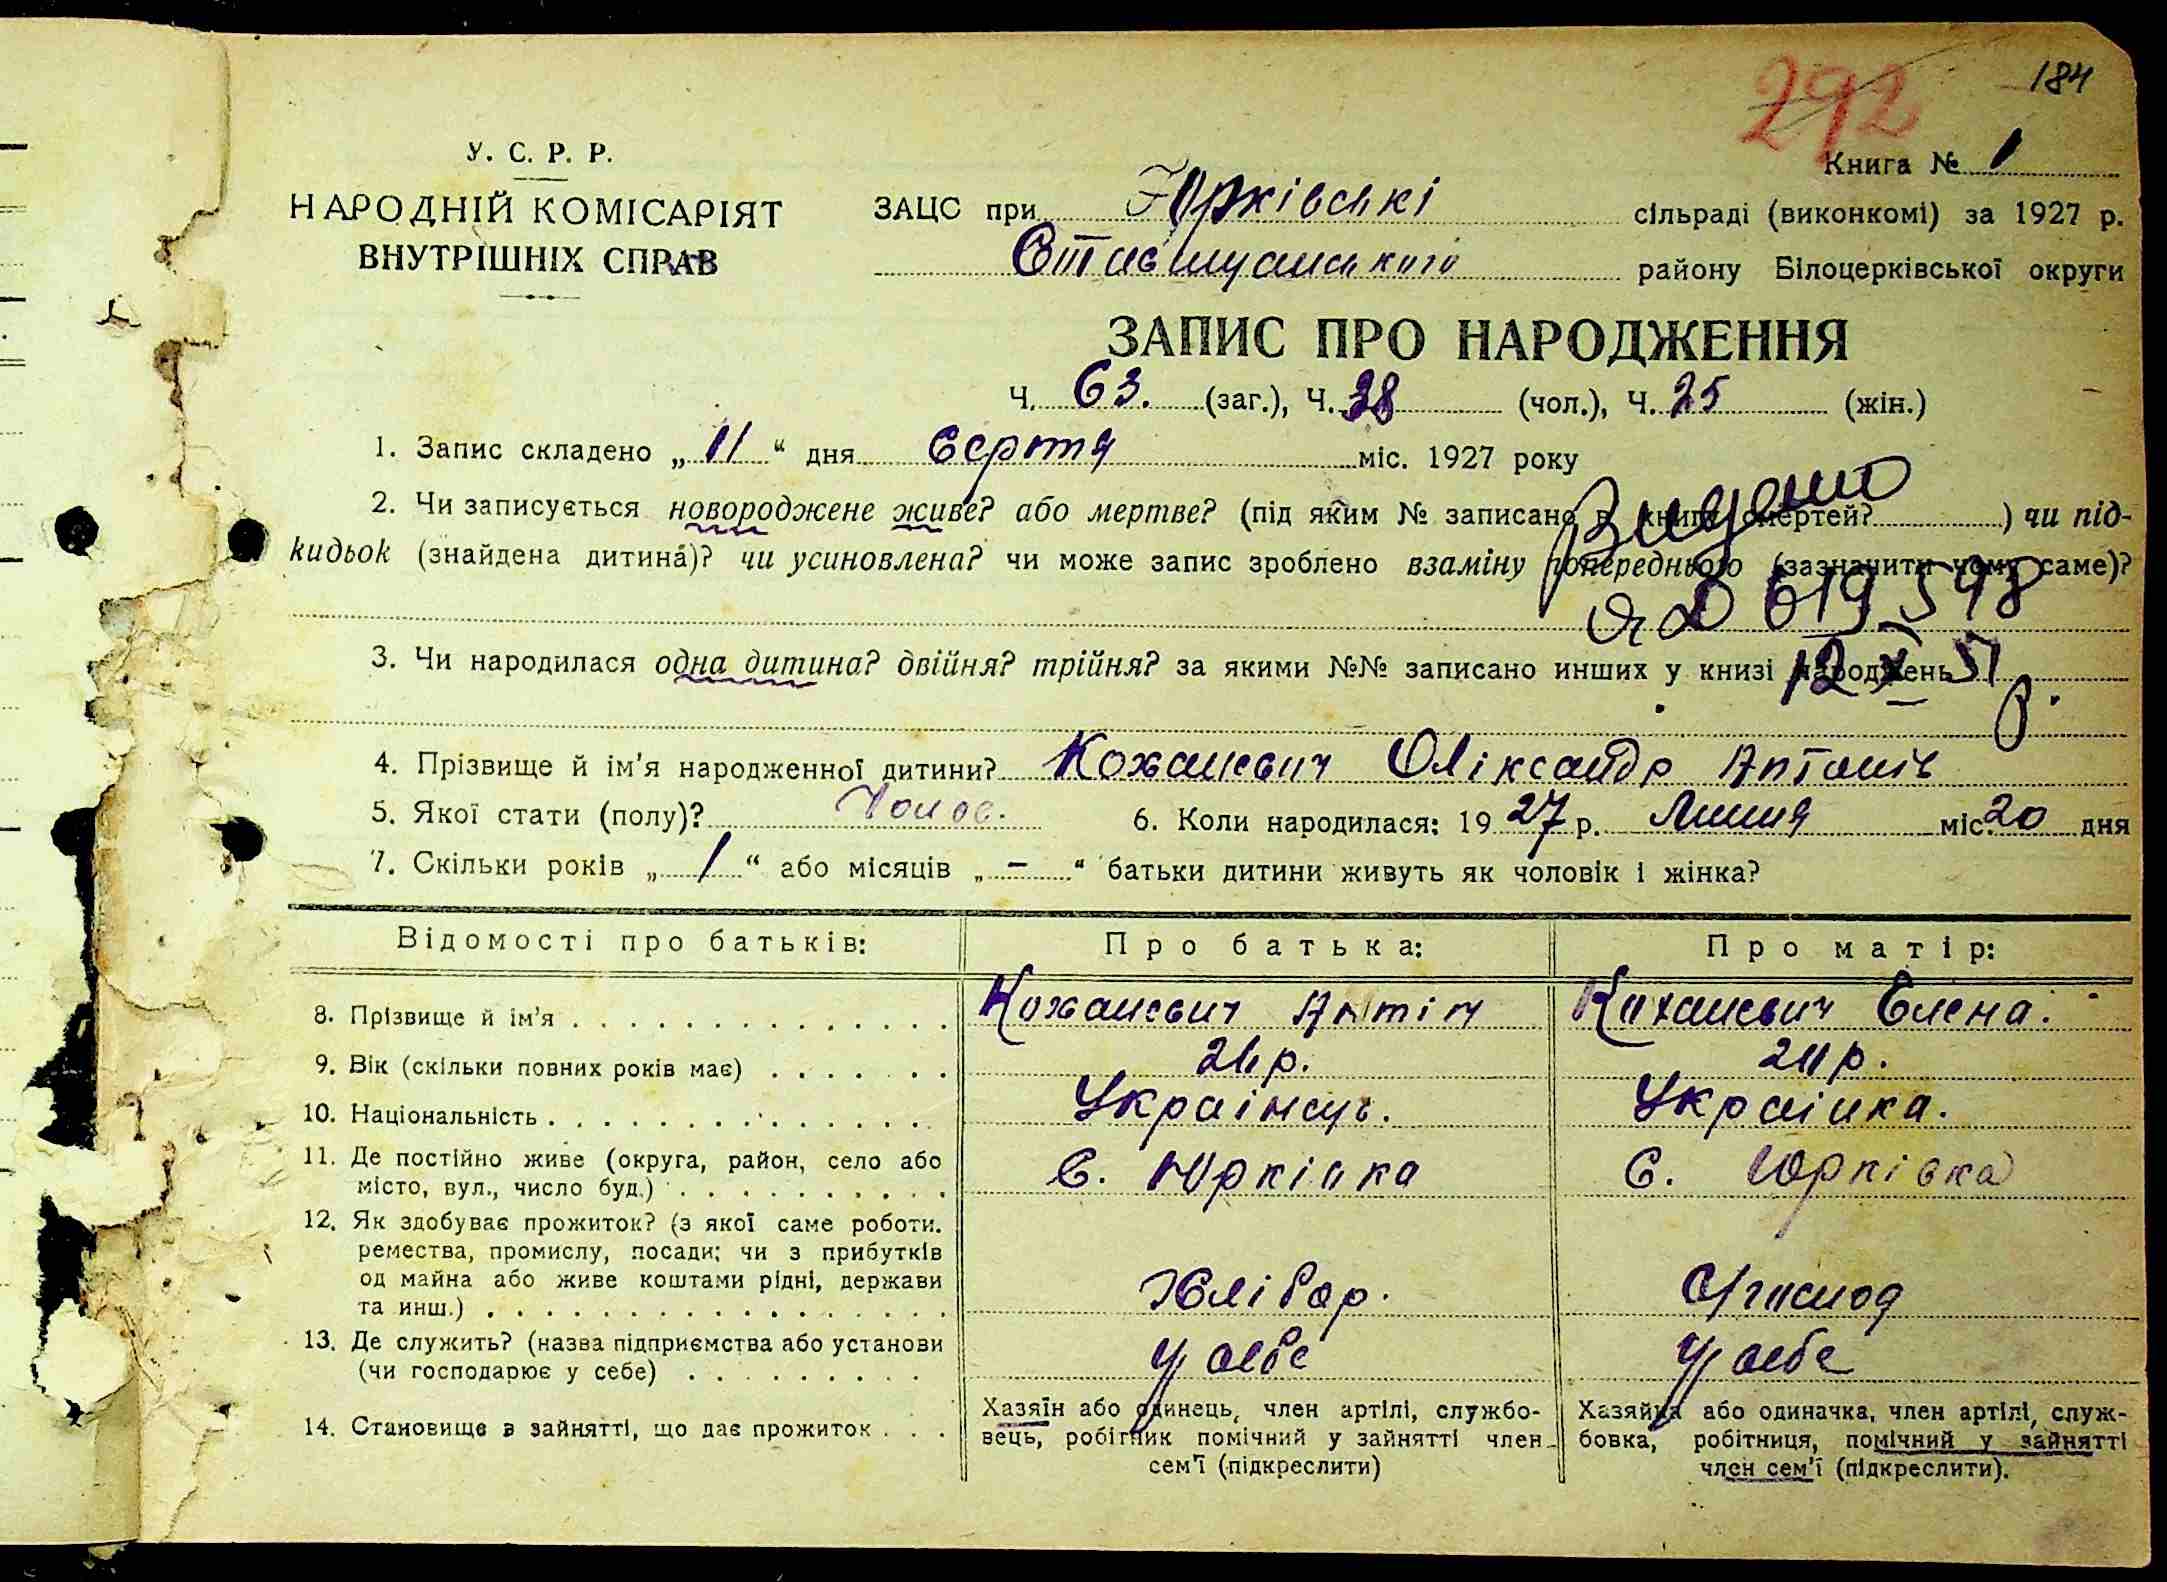 292
184
У. С. Р. Р.
Книга № 1
НАРОДНІЙ КОМІСАРІЯТ
ВНУТРІШНІХ СПРАВ
ЗАЦС при Юрківські сільраді (виконкомі) за 1927 р.
Ставищанського району Білоцерківської округи
ЗАПИС ПРО НАРОДЖЕННЯ
Ч. 63. (заг.), Ч. 38 (чол.), Ч. 25 (жін.)
1. Запис складено „ 11 “ дня Серптя міс. 1927 року
2. Чи записується новороджене живе? або мертве? (під яким № записано в книгу смертей? ) чи під-
кидьок (знайдена дитина)? чи усиновлена? чи може запис зроблено взаміну попереднього (зазначити чому саме)?
Видано
619548
3. Чи народилася одна дитина? двійня? трійня? за якими №№ записано инших у книзі народжень
12 X 51 р.
4. Прізвище й ім'я народженної дитини? Кожаневич Оліксандр Антонів
5. Якої стати (полу)? Чолов. 6. Коли народилася: 1927 р. Липня міс. 20 дня
7. Скільки років „ 1 “ або місяців „ – “ батьки дитини живуть як чоловік і жінка?
Відомості про батьків: Про батька: Про матір:
8. Прізвище й ім'я Кожаневич Антін Кожаневич Елена.
9. Вік (скільки повних років має) р. р.
10. Національність Українець. Українка.
11. Де постійно живе (округа, район, село або
місто, вул., число буд.) с. Юрківка с. Юрківка
12. Як здобуває прожиток? (з якої саме роботи.
ремества, промислу, посади; чи з прибутків
од майна або живе коштами рідні, держави
та инш.) Хлібор.
13. Де служить? (назва підприємства або установи
(чи господарює у себе) У себе У себе
14. Становище в зайнятті, що дає прожиток
Хазяїн або одинець, член артілі, службо-
вець, робітник помічний у зайнятті член
сем'ї (підкреслити)
Хазяйка або одиначка, член артілі, служ-
бовка, робітниця, помічний у зайнятті
член сем'ї (підкреслити).